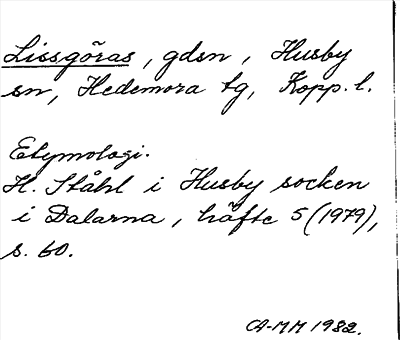 Lissgöras, gdsn, Husby
sn, Hedemora tg, Kopp. l.
Etymologi.
H. Ståhl i Husby socken
i Dalarna, häfte 5 (1979),
s. 60.
CA-MM 1982.